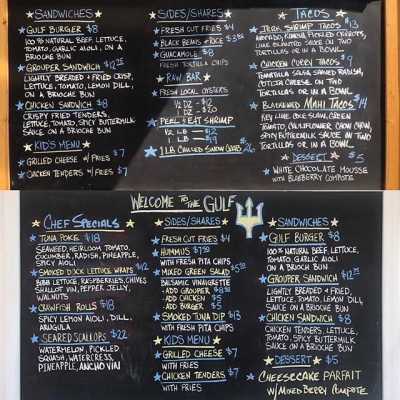 SANDWICHES
GULF BURGER $8
100% NATURAL BEEF, LETTUCE,
TOMATO, GARLIC AIOLI, ON A
BRIOCHE BUN
GROUPER SANDWICH $12
LIGHTLY BREADED + FRIED CRISP,
LETTUCE, TOMATO, LEMON DILL,
ON A BRIOCHE BUN
CHICKEN SANDWICH $8
CRISPY FRIED TENDERS,
LETTUCE, TOMATO, SPICY BUTTERMILK
SAUCE ON A BRIOCHE BUN
KID'S MENU
GRILLED CHEESE W/ FRIES $7
CHICKEN TENDERS W/ FRIES $7
SIDES/SHARES
FRESH CUT FRIES $4
BLACK BEANS + RICE $3.50
GUACAMOLE $6
FRESH TORTILLA CHIPS
RAW BAR
FRESH LOCAL OYSTERS
1/2 DZ -
1 DZ - $20
PEEL & EAT SHRIMP
1/2 LB - $12
1 LB -
1 LB CHILLED SNOW CRAB $26
TACOS
JERK SHRIMP TACOS $13
AVOCADO, JICAMA, PICKLED CARROTS,
LIME CILANTRO SAUCE ON TWO
TORTILLAS OR IN A BOWL
CHICKEN CURRY TACOS $9
TOMATILLA SALSA, SHAVED RADISH,
COTIJA CHEESE ON TWO
TORTILLAS OR IN A BOWL
BLACKENED MAHI TACOS $14
KEY LIME COLE SLAW, GREEN
TOMATO, CAULIFLOWER CHOW CHOW,
SPICY BUTTERMILK SAUCE ON TWO
TORTILLAS OR IN A BOWL
DESSERT $5
WHITE CHOCOLATE MOUSSE
WITH BLUEBERRY COMPOTE
WELCOME TO THE GULF
CHEF SPECIALS
TUNA POKE $18
SEAWEED, HEIRLOOM TOMATO,
CUCUMBER, RADISH, PINEAPPLE,
SPICY AIOLI
SMOKED DUCK LETTUCE WRAPS $12
BIBB LETTUCE, RASPBERRIES, CHIVES
SHALLOT VIN, PEPPER JELLY,
WALNUTS
CRAWFISH ROLLS $18
SPICY LEMON AIOLI, DILL,
ARUGULA
SEARED SCALLOPS $22
WATERMELON, PICKLED
SQUASH, WATERCRESS,
PINEAPPLE, ANCHO VIN
SIDES/SHARES
FRESH CUT FRIES $4
HUMMUS $7.50
WITH FRESH PITA CHIPS
MIXED GREEN SALAD $5.50
BALSAMIC VINAIGRETTE
- ADD GROUPER $8
- ADD CHICKEN $5
- ADD BURGER $5
SMOKED TUNA DIP $13
WITH FRESH PITA CHIPS
KIDS MENU
GRILLED CHEESE $7
WITH FRIES
CHICKEN TENDERS $7
WITH FRIES
SANDWICHES
GULF BURGER $8
100% NATURAL BEEF, LETTUCE,
TOMATO, GARLIC AIOLI ON
A BRIOCH BUN
GROUPER SANDWICH $12
LIGHTLY BREADED + FRIED,
LETTUCE, TOMATO, LEMON DILL
SAUCE ON A BRIOCHE BUN
CHICKEN SANDWICH $8
CHICKEN TENDERS, LETTUCE,
TOMATO, SPICY BUTTERMILK
SAUCE ON A BRIOCHE BUN
DESSERT $5
CHEESECAKE PARFAIT
W/ MIXED BERRY COMPOTE